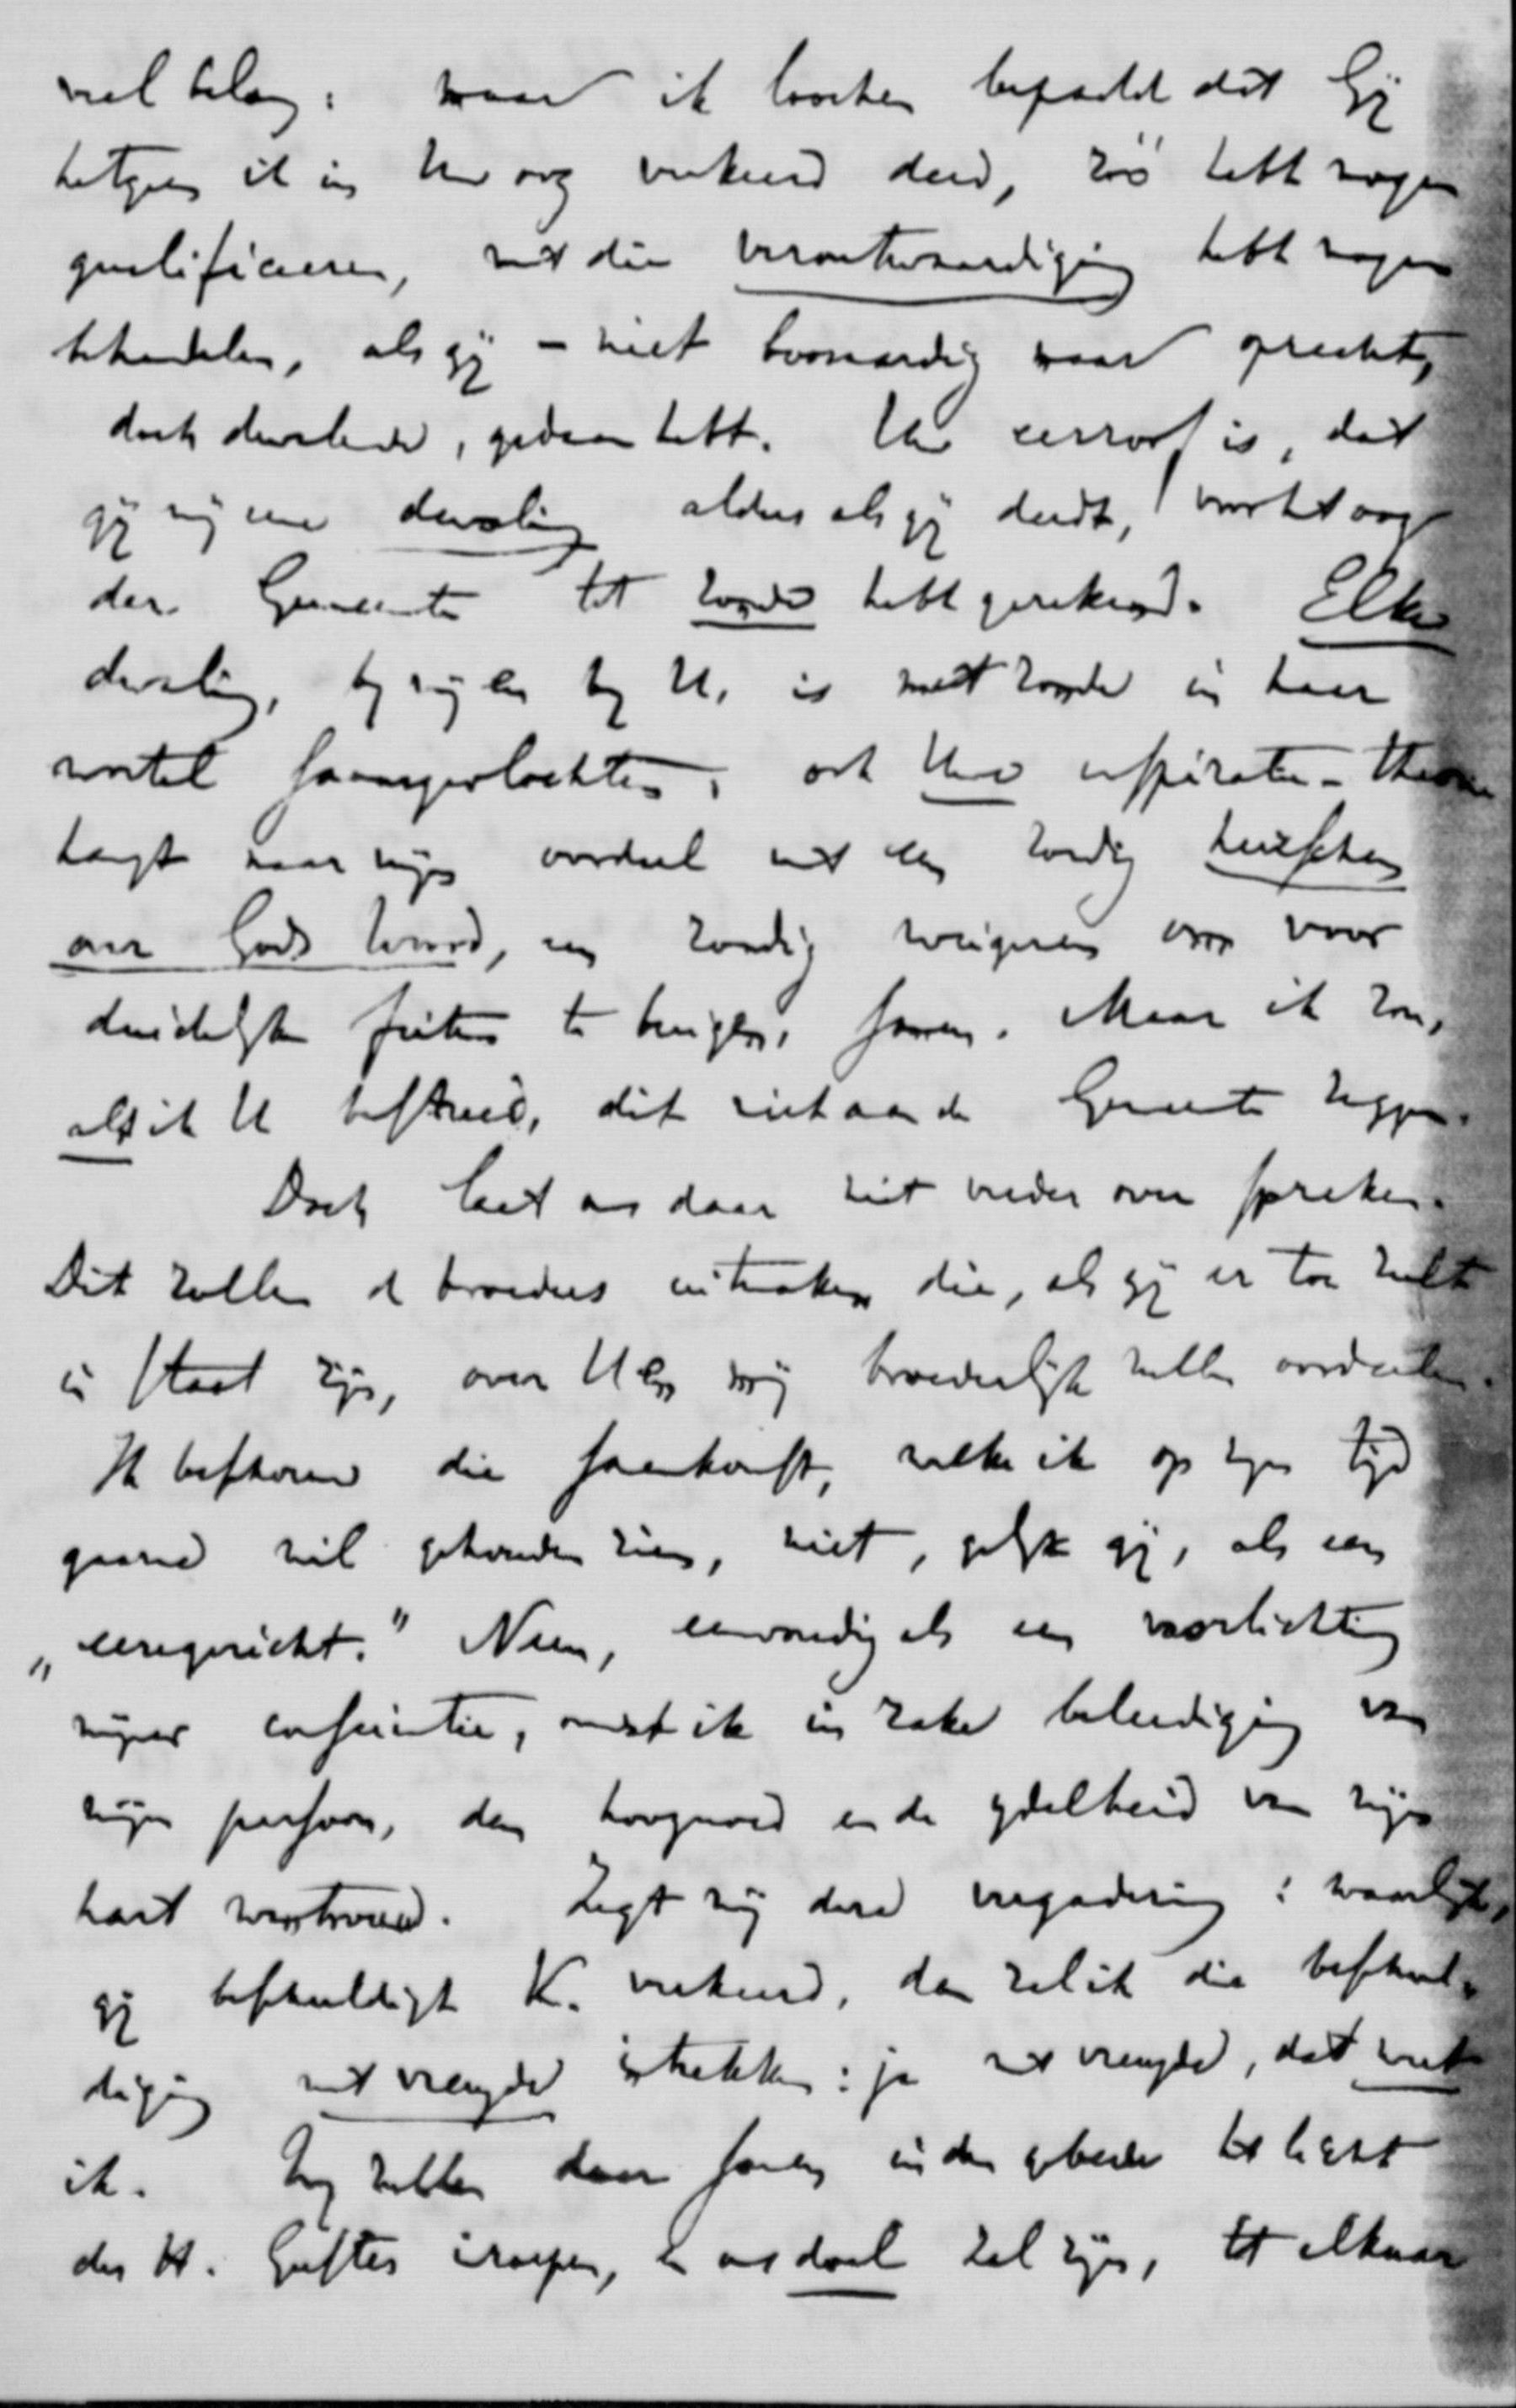 veel belang: maar ik loochen bepaald dat Gij
hetgeen ik in Uw oog verkeerd deed, zóó hebt mogen
qualificeeren, met die verontwaardiging hebt mogen
behandelen, als gij – niet boosaardig maar oprecht,
doch dwalende, gedaan hebt. Uw is, dat
gij mijne dwaling aldus als gij deedt, voor het oog
der Gemeente tot zonde hebt gerekend. Elke
dwaling, bij mij en bij U, is met zonde in haar
wortel saamgevlochten, ook Uwe inspiratie-theorie
hangt naar mijn oordeel met een zondig heerschen
over Gods Woord, een zondig weigeren om voor
duidelijke feiten te buigen, samen. Maar ik zou,
als ik U bestreed, dit niet aan de Gemeente zeggen.
Doch laat ons daar niet verder over spreken.
Dit zullen de broeders uitmaken die, als gij er toe hebt
in staat zijn, over U en mij broederlijk zullen oordeelen.
Ik beschouw die saamkomst, welke ik op zijn tijd
gaarne wil gehouden zien, niet, gelijk gij, als een
„eeregericht." Neen, eenvoudig als een voorlichting
mijner conscientie, omdat ik in zake beleediging van
mijn persoon, den hoogmoed en de ijdelheid van mijn
hart wantrouw. Zegt mij deze vergadering: waarlijk,
gij beschuldigt K. verkeerd, dan zal ik die beschul-
diging met vreugde intrekken: ja met vreugde, dat weet
ik. Wij zullen daar samen in den gebede het licht
des H. Geestes inroepen, en ons doel zal zijn, tot elkaar